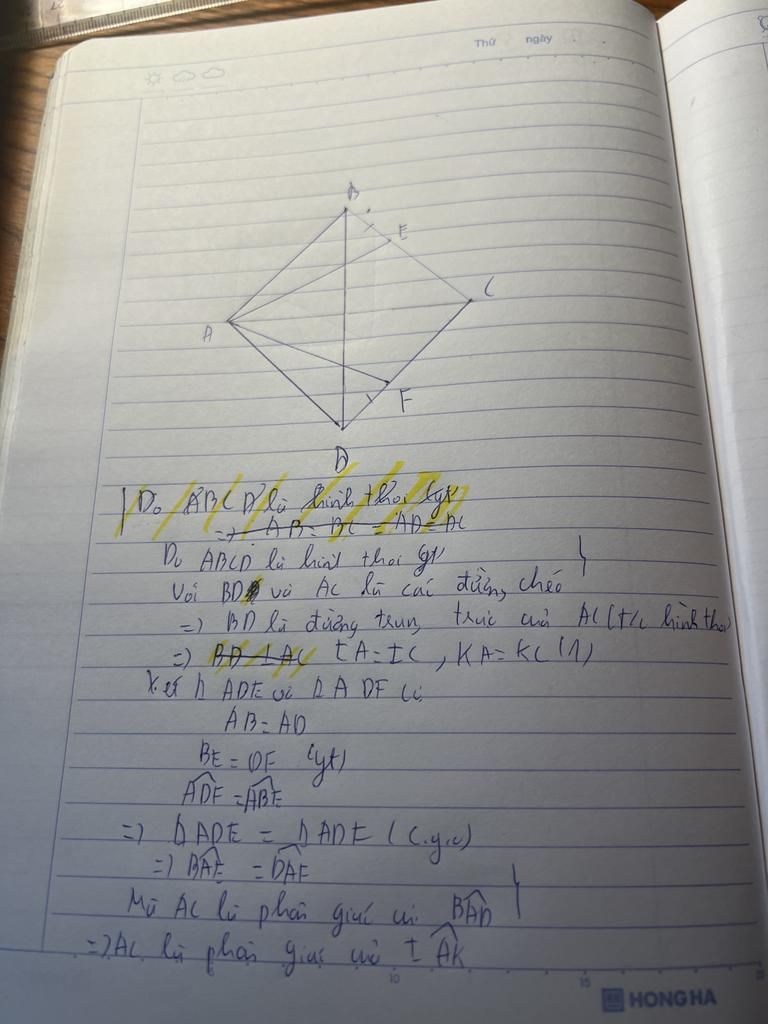 Thứ ngày
B
E
C
A
F
D
Do ABCD là hình thoi (gt)
=> AB = BC = AD = DC
Do ABCD là hình thoi (gt)
Với BD và AC là các đường chéo
=> BD là đường trung trực của AC (t/c hình thoi)
=> BD ⊥ AC IA = IC, KA = KC (1)
Xét Δ ADE và Δ ADF có
AB = AD
BE = DF (gt)
ADF = ABE
=> Δ ADE = Δ ADE (c.g.c)
=> BAE = DAF
Mà AC là phân giác của BAD
=> AC là phân giác của IAK
10
15
HONG HA